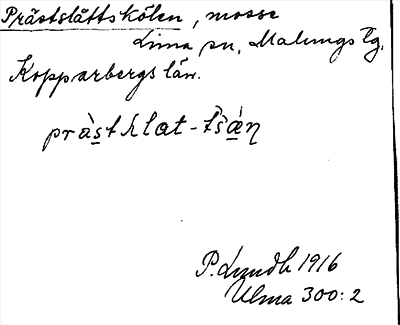 Prästslåttskölen, mosse
Lima sn, Malungs tg.
Kopparbergs län.
pràstklat-tšä́n
P. Lundh 1916
Ulma 300:2